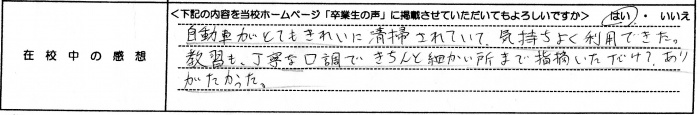 ＜下記の内容を当校ホームページ「卒業生の声」に掲載させていただいてもよろしいですか＞　はい ・ いいえ
在校中の感想
自動車がとてもきれいに清掃されていて、気持ちよく利用できた。
教習も、丁寧な口調できちんと細かい所まで指摘いただけて、あり
がたかった。